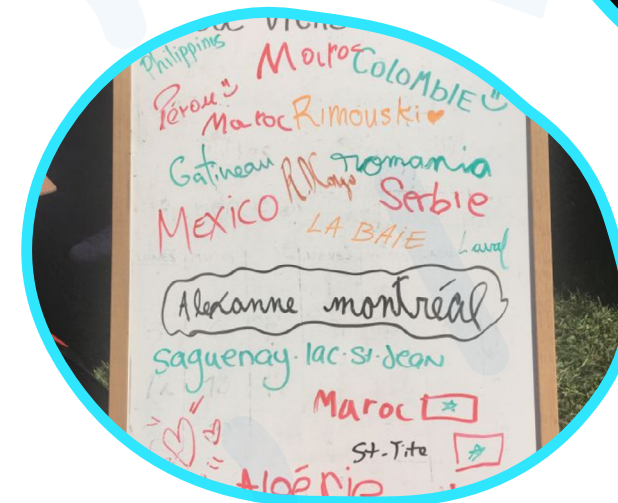 Philippins Maroc COLOMBIE
Pérou
Maroc Rimouski
Gatineau romania
MEXICO Serbie
LA BAIE Laval
Alexanne montréal
Saguenay-lac-st-Jean
Maroc
St-Tite
Algérie